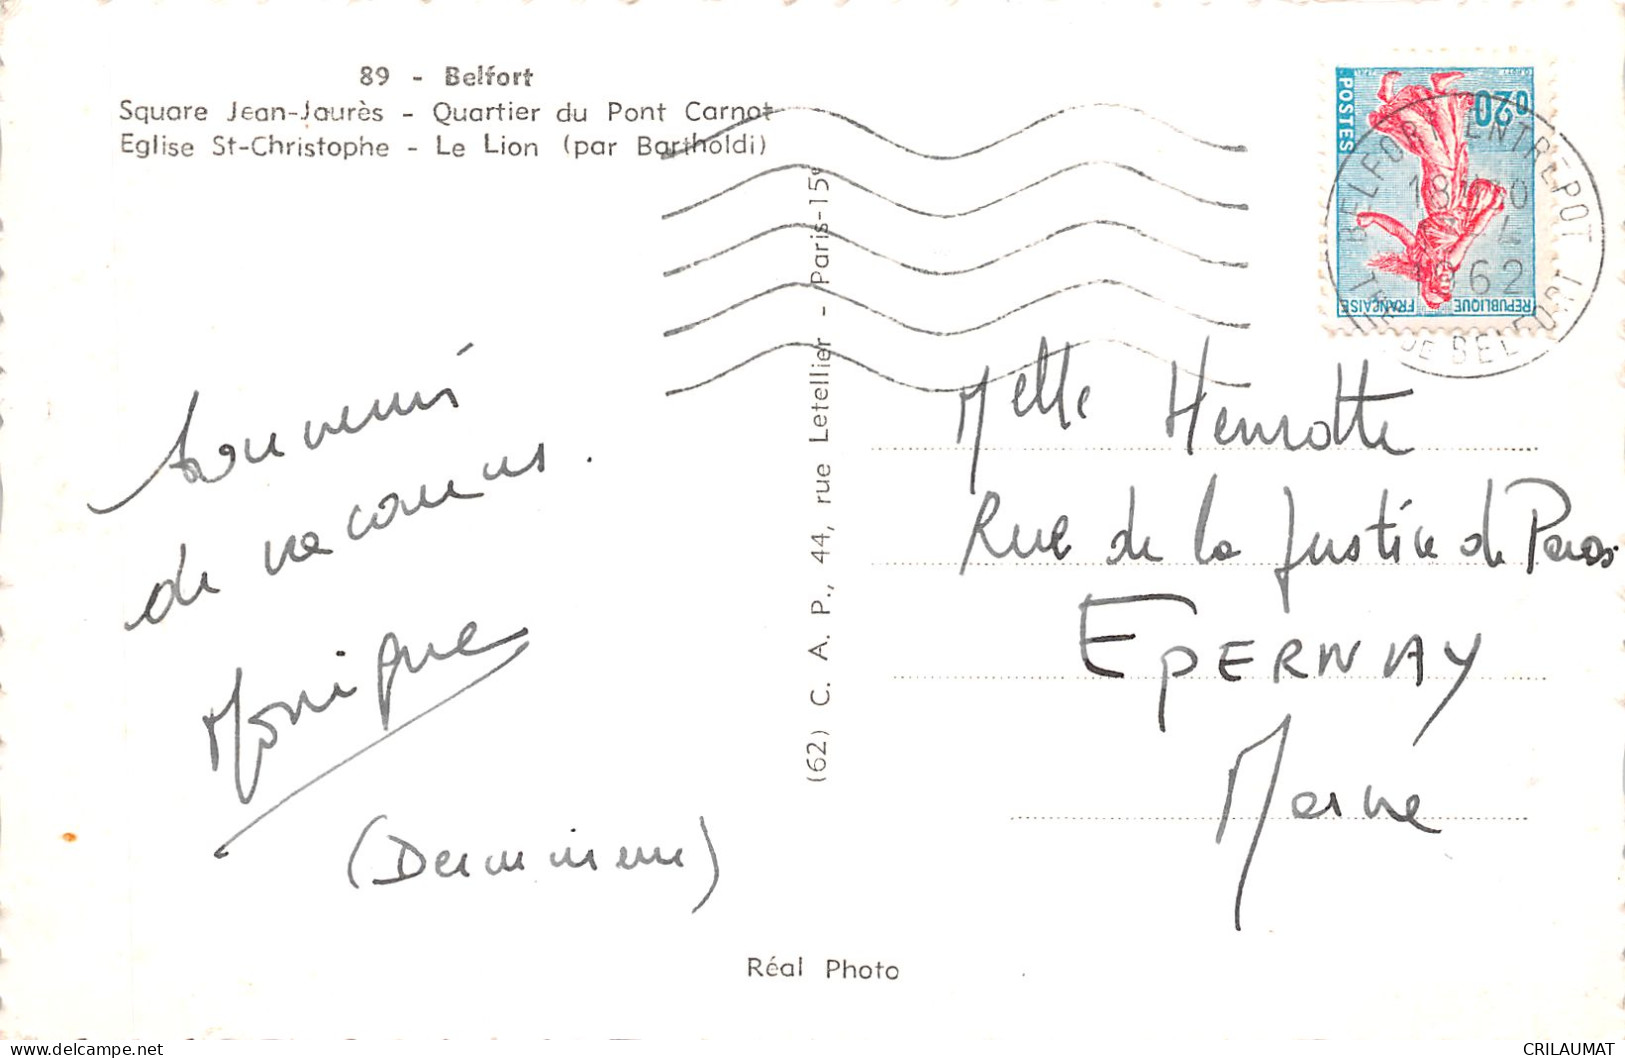 89 - Belfort
Square Jean-Jaurès - Quartier du Pont Carnot
Eglise St-Christophe - Le Lion (par Bartholdi)
0,20
POSTES
REPUBLIQUE FRANÇAISE
BELFORT ENTREPOT
18H
1962
TRE DE BELFORT
(62) C. A. P., 44, rue Letellier - Paris-15e
Souvenirs
de vacances.
Monique
Melle Henrotte
Rue de la Justice de Paris
EPERNAY
Marne
Réal Photo
CRILAUMAT